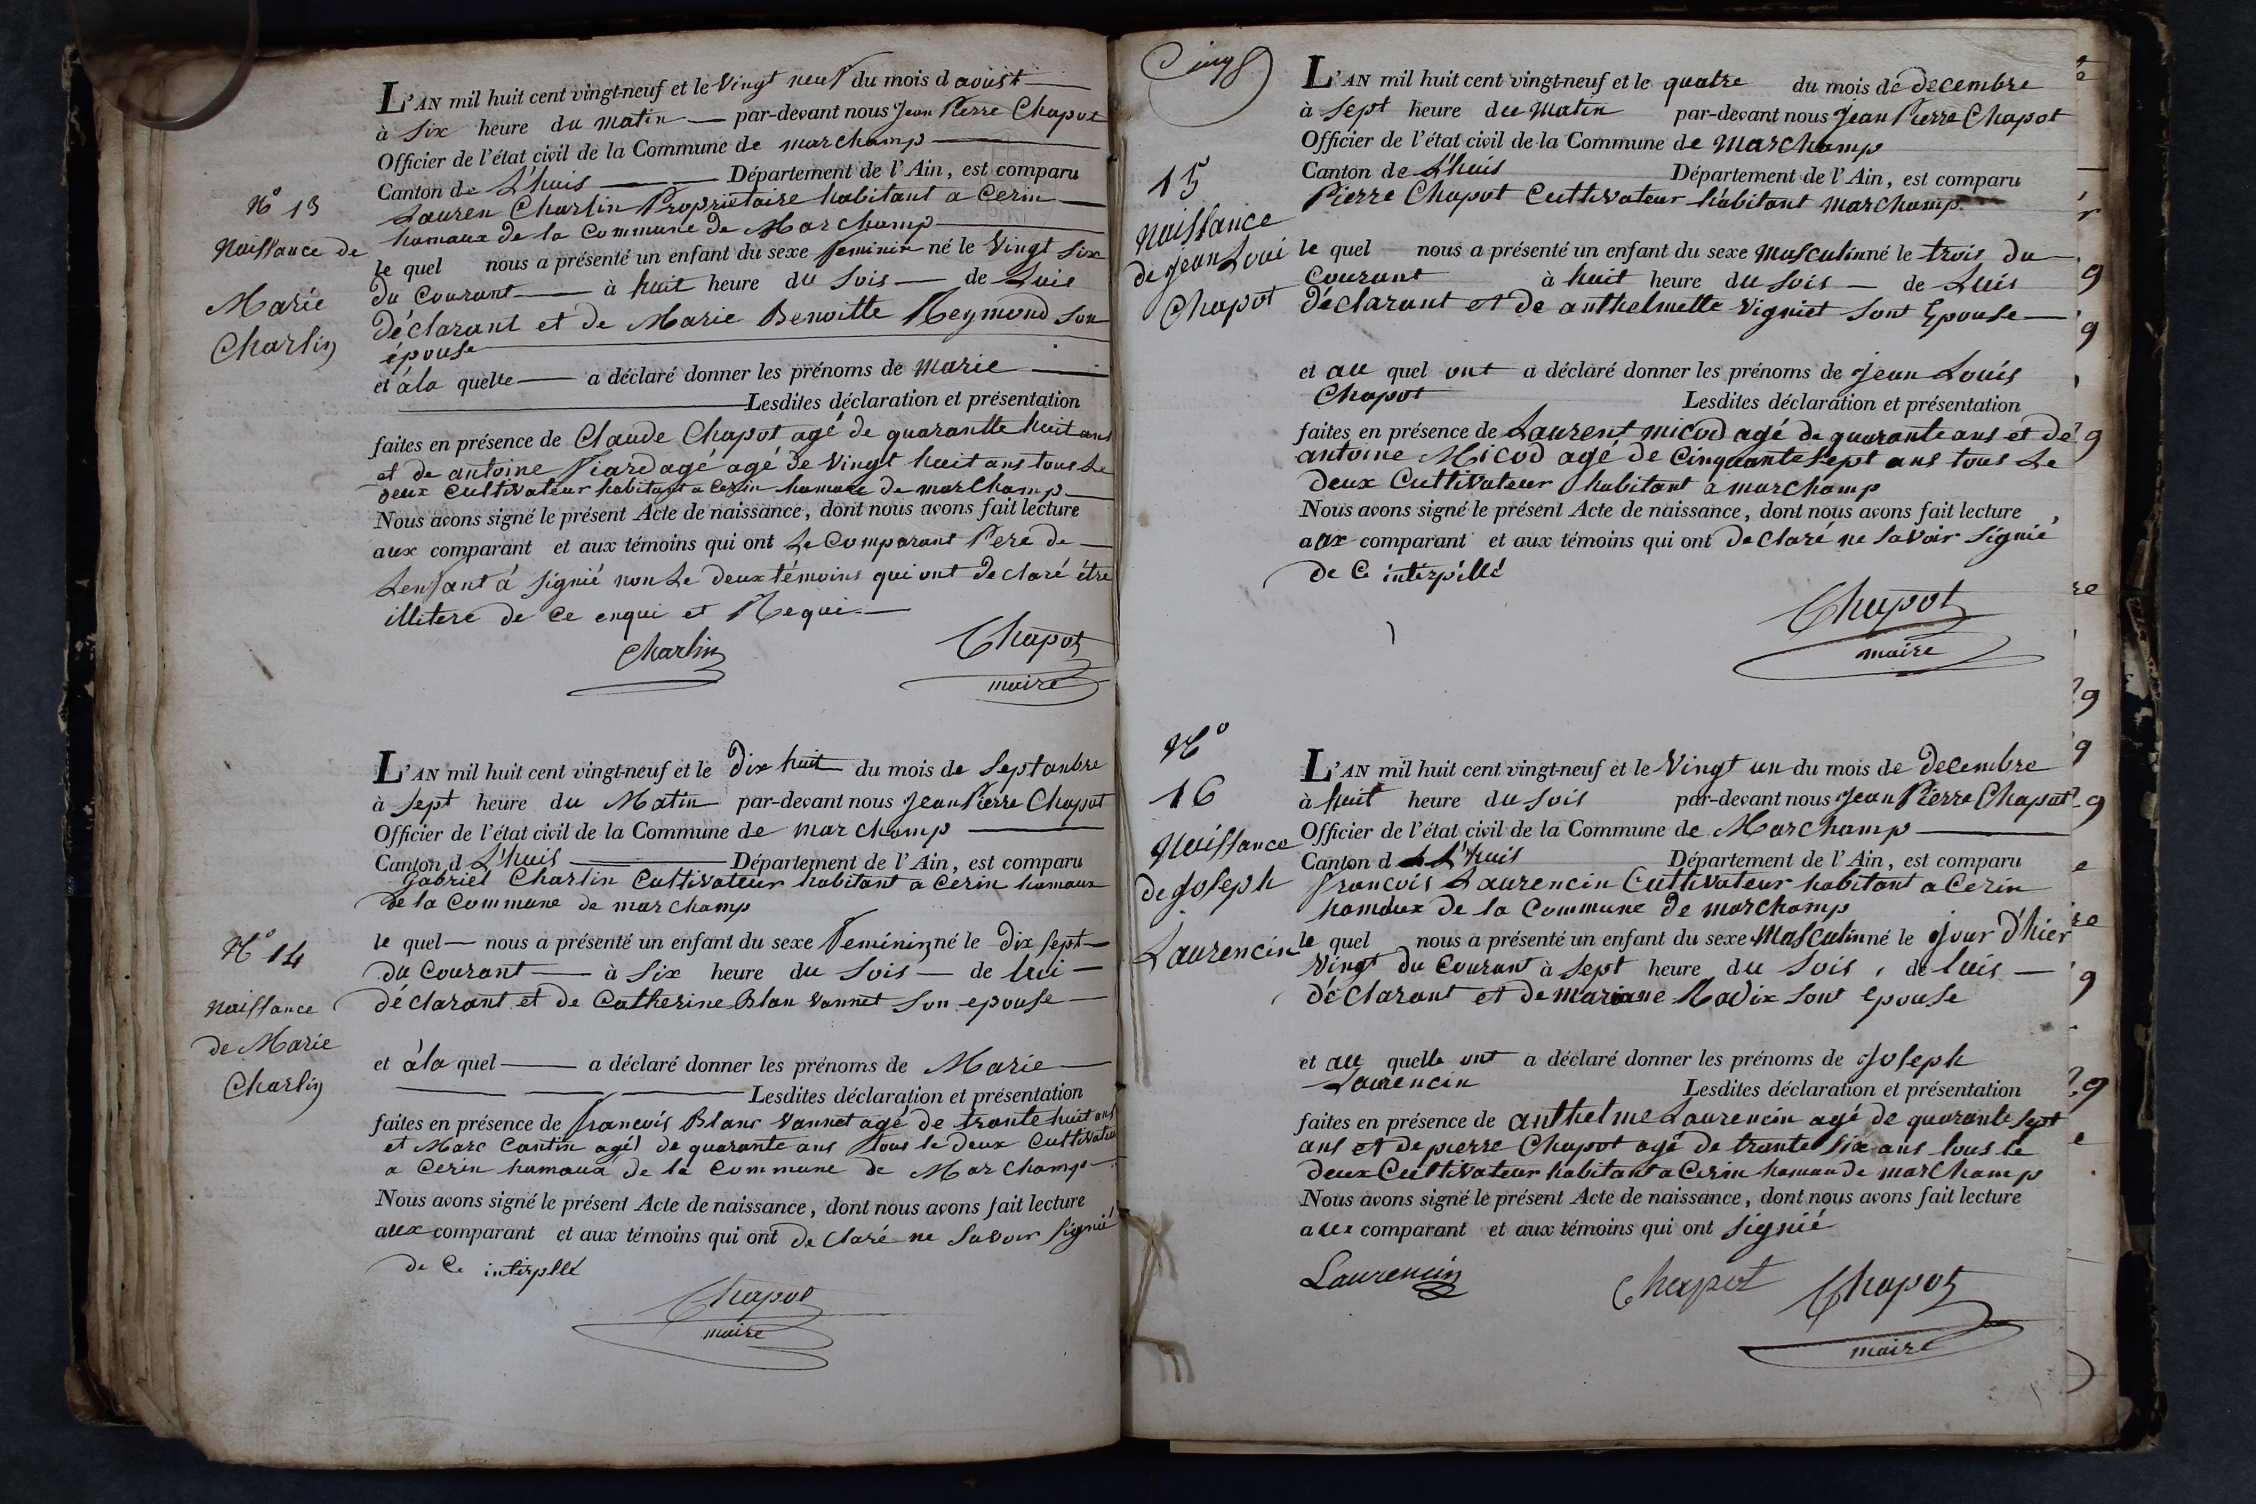 N° 13
Naissance de
Marie
Charlin
L'AN mil huit cent vingt-neuf et le Vingt neuf du mois d aoust
à Six heure du matin par-devant nous Jean Pierre Chapot
Officier de l'état civil de la Commune de marchamp
Canton de L'huis Département de l'Ain, est comparu
Lauren Charlin Propriétaire habitant a Cerin
hamaux de la Commune de Marchamp
le quel nous a présenté un enfant du sexe feminin né le Vingt Six
du Courant à huit heure du Soir de Luis
déclarant et de Marie Benoitte Reymond Son
épouse
et à la quelle a déclaré donner les prénoms de Marie
Lesdites déclaration et présentation
faites en présence de Claude Chapot agé de quarantte huit ans
et de antoine Piard agé agé de Vingt huit ans tous Le
deux Cultivateur habitant a Cerin hamaux de marchamp
Nous avons signé le présent Acte de naissance, dont nous avons fait lecture
aux comparant et aux témoins qui ont Le Comparant Pere de
Lenfant á signié non Le deux témoins qui ont declaré étre
illitere de Ce enqui et Requi
Charlin Chapot
maire
N° 14
Naissance
de Marie
Charlin
L'AN mil huit cent vingt-neuf et le dix huit du mois de Septanbre
à Sept heure du Matin par-devant nous Jean Pierre Chapot
Officier de l'état civil de la Commune de marchamp
Canton d L'huis Département de l'Ain, est comparu
Gabriel Charlin Cultivateur habitant a Cerin hamaux
de la Commune de marchamp
le quel nous a présenté un enfant du sexe Feminin né le dix sept
du Courant à Six heure du Soir de lui
déclarant et de Catherine Blan Vannet Son epouse
et à la quel a déclaré donner les prénoms de Marie
Lesdites déclaration et présentation
faites en présence de francois Blanc Vannet agé de trante huit ans
et Marc Cantin agé de quarante ans tous le deux Cultivateur
a Cerin hamaux de la Commune de Marchamp
Nous avons signé le présent Acte de naissance, dont nous avons fait lecture
aux comparant et aux témoins qui ont declaré ne Savoir Signié
de Ce interpllé
Chapot
maire
Cinq
15
Naissance
de Jean Loui
Chapot
L'AN mil huit cent vingt-neuf et le quatre du mois de decembre
à Sept heure du Matin par-devant nous Jean Pierre Chapot
Officier de l'état civil de la Commune de Marchamp
Canton de L'huis Département de l'Ain, est comparu
Pierre Chapot Cultivateur habitant marchamp
le quel nous a présenté un enfant du sexe Masculin né le trois du
Courant à huit heure du Soir de Luis
déclarant et de anthelmette Vigniet Sont Epouse
et au quel ont a déclaré donner les prénoms de Jean Louis
Chapot Lesdites déclaration et présentation
faites en présence de Laurent Micod agé de quarante ans et de
antoine Micod agé de Cinquante Sept ans tous Le
deux Cultivateur habitant a marchamp
Nous avons signé le présent Acte de naissance, dont nous avons fait lecture
aux comparant et aux témoins qui ont declaré ne Savoir Signié
de Ce interpillé
Chapot
maire
N°
16
Naissance
de Joseph
Laurencin
L'AN mil huit cent vingt-neuf et le Vingt un du mois de decembre
à huit heure du Soir par-devant nous Jean Pierre Chapot
Officier de l'état civil de la Commune de Marchamp
Canton d L'huis Département de l'Ain, est comparu
francois Laurencin Cultivateur habitant a Cerin
hamaux de la Commune de marchamp
le quel nous a présenté un enfant du sexe Masculin né le Jour d'hier
Vingt du Courant à Sept heure du Soir, de luis
déclarant et de mariane Radix Sont épouse
et au quelle ont a déclaré donner les prénoms de Joseph
Laurencin Lesdites déclaration et présentation
faites en présence de anthelme Laurencin agé de quarante Sept
ans et de pierre Chapot agé de trante Six ans tous le
deux Cultivateur habitant a Cerin hamau de marchamp
Nous avons signé le présent Acte de naissance, dont nous avons fait lecture
aux comparant et aux témoins qui ont Signié
Laurencin Chapot Chapot
maire